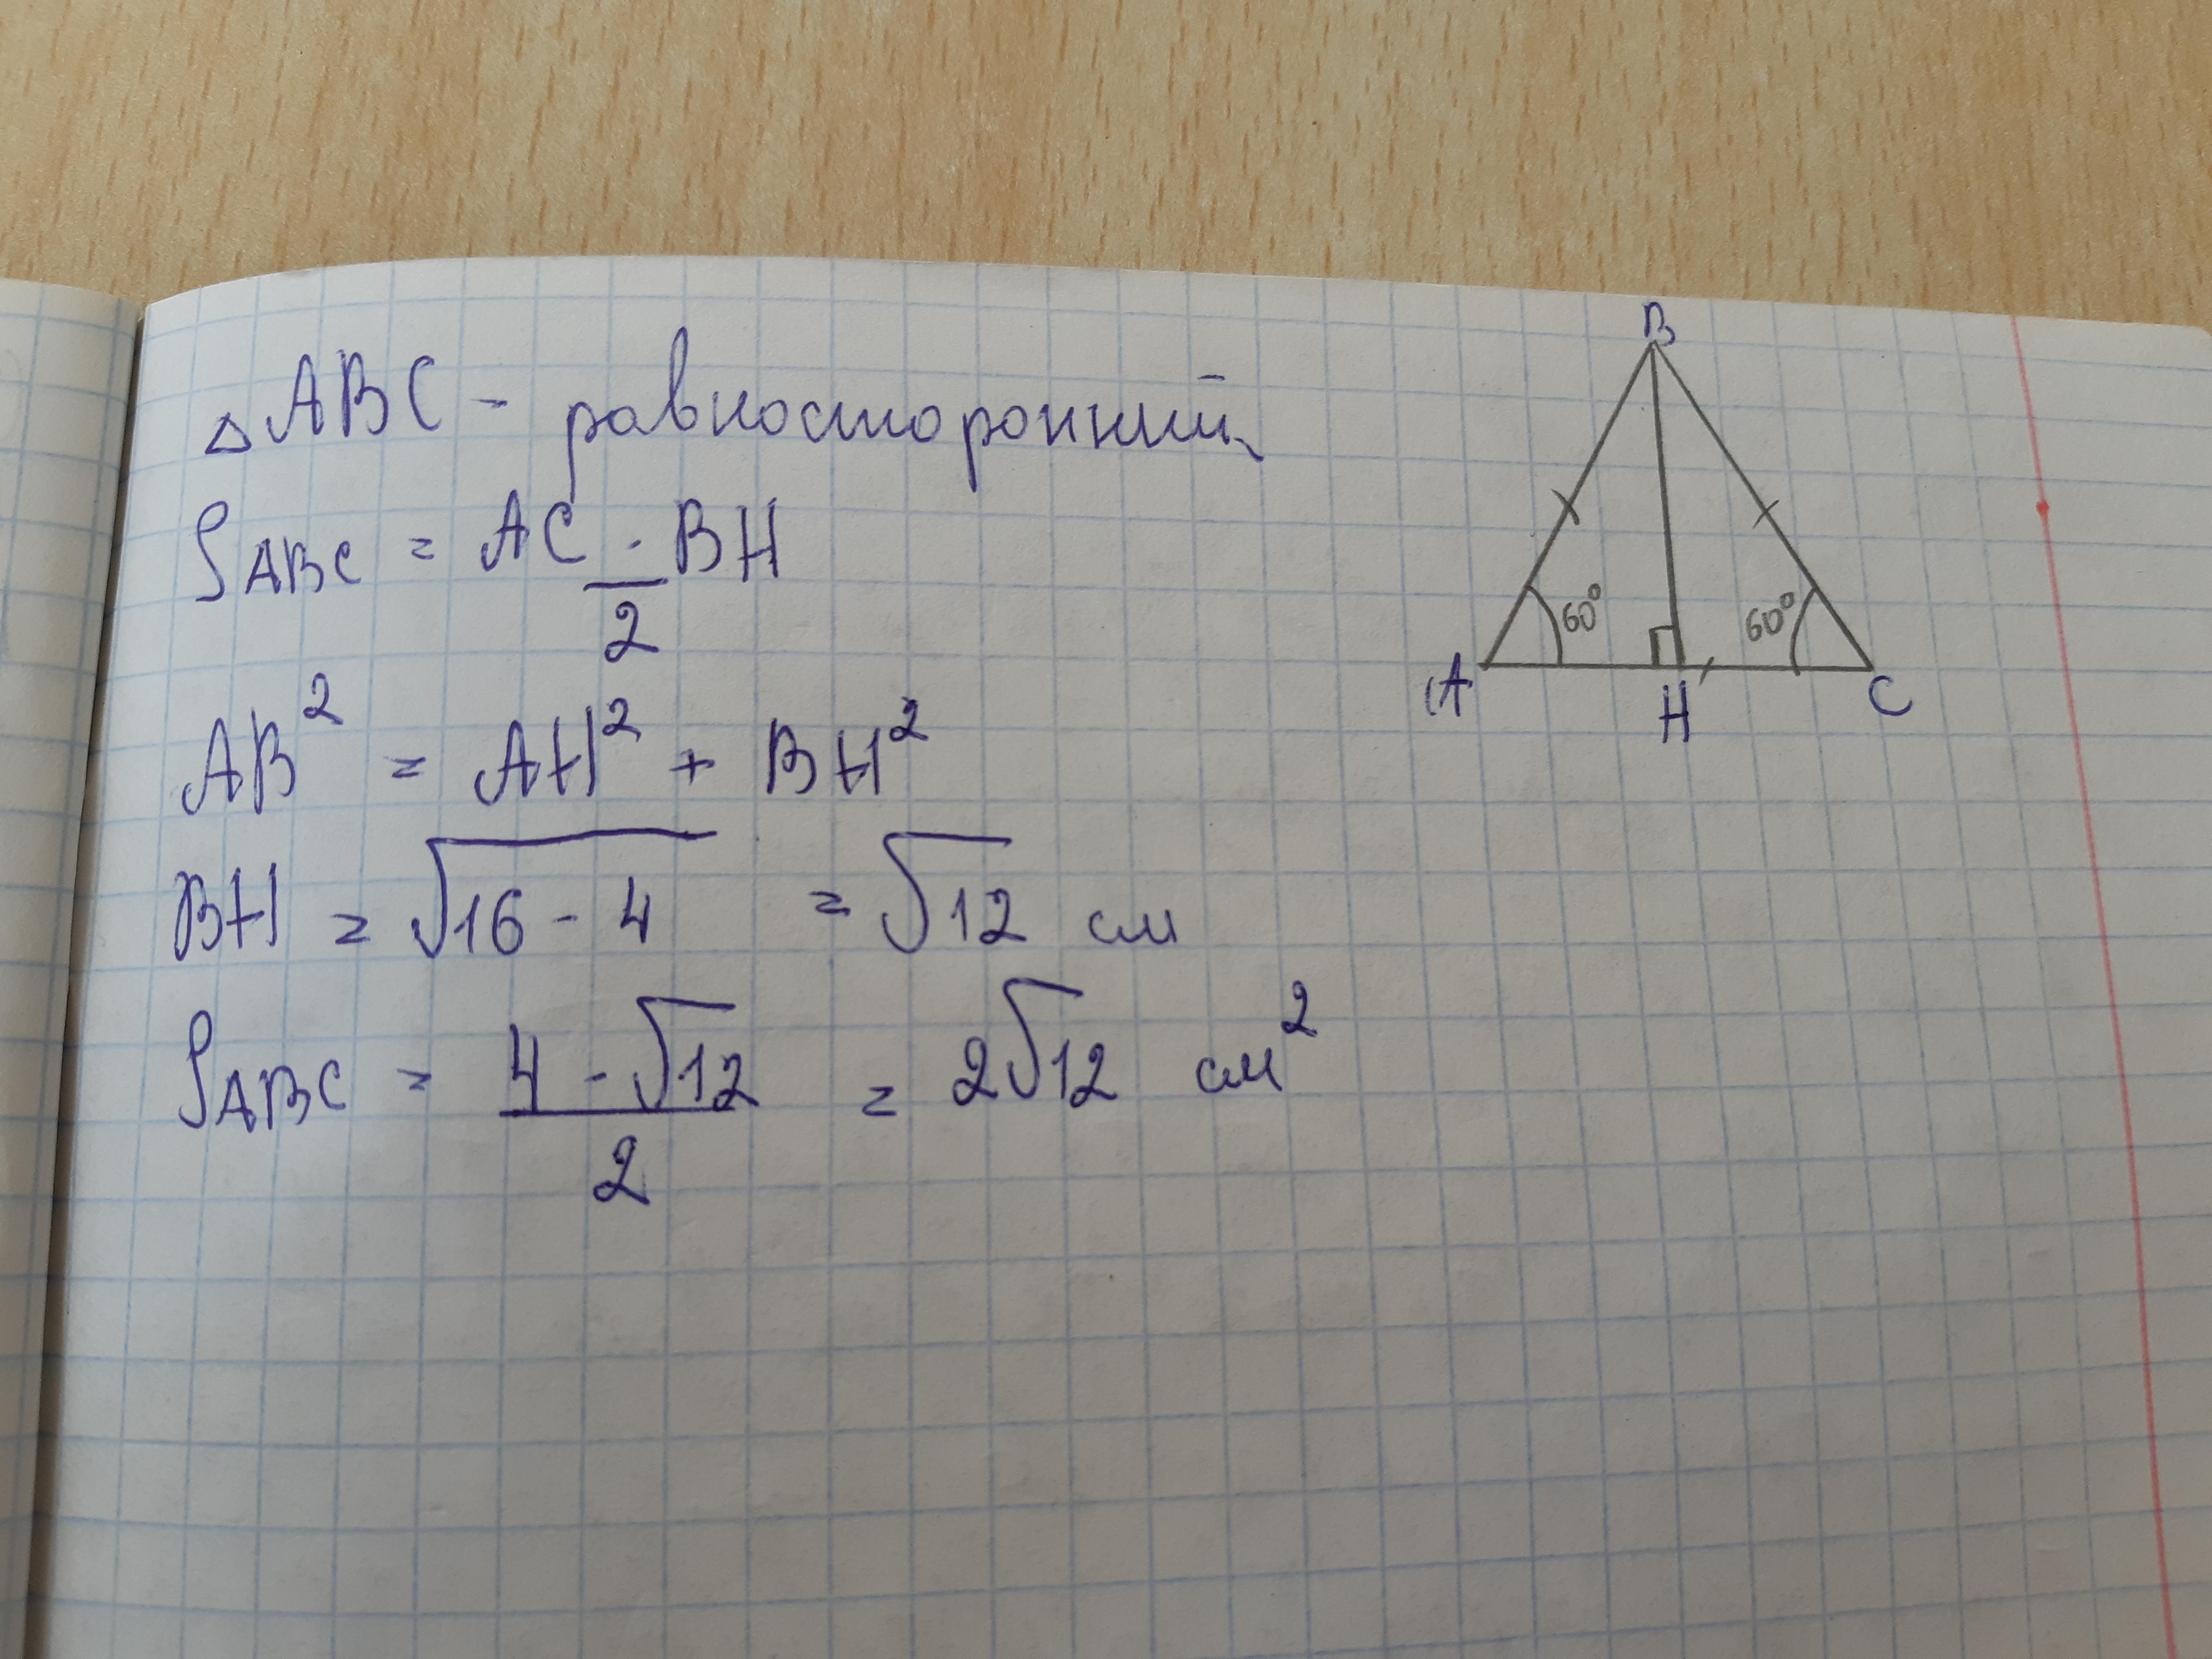 △ABC - равносторонний
S ABC = AC · BH
2
AB² = AH² + BH²
BH = √16 - 4 = √12 см
S ABC = 4 · √12 = 2√12 см²
2
B
60° 60°
A H C